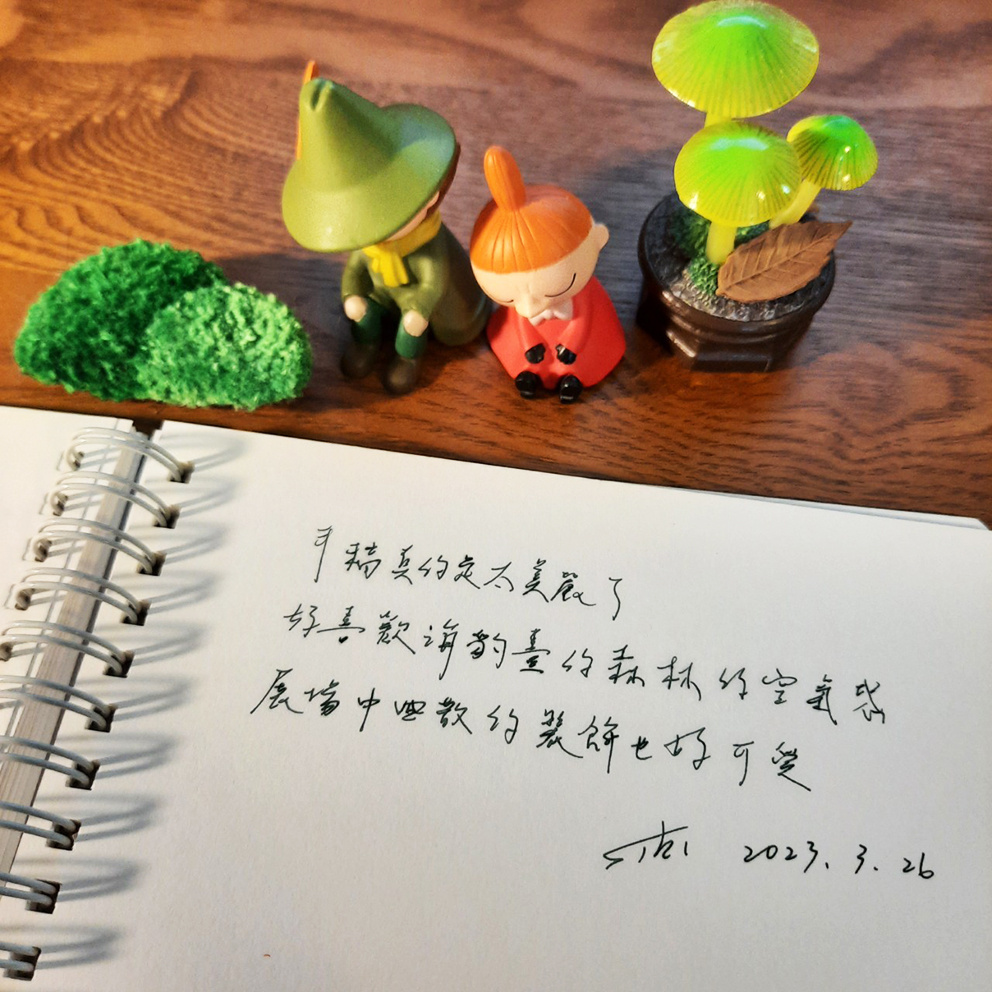 手稿真的是太美麗了
好喜歡海豹臺的森林的空氣袋
展場中四散的裝飾也好可愛
2023.3.26